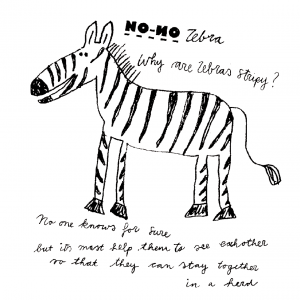 NO-MO Zebra
Why are Zebras Stripy?
No one knows for sure
but it's most help them to see eachother
so that they can stay together
in a herd